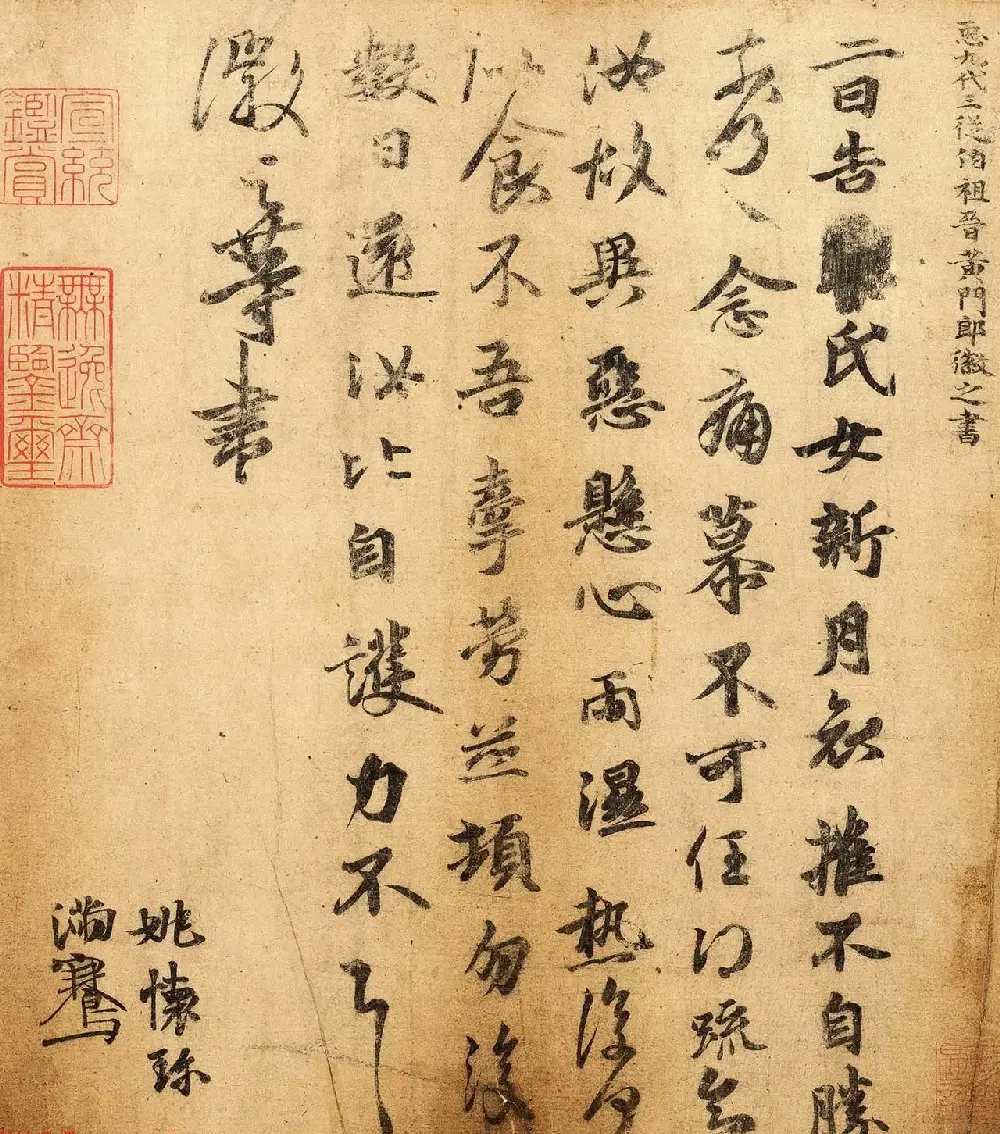 𢘑九代三從伯祖晉黃門郎徽之書
二日告氏女新月哀摧不自勝
奈何〻〻念痛慕不可任得疏知
汝故異惡懸心雨濕熱復何
似食不吾牽勞並頓勿復
數日還汝比自護力不具
徽之等書
姚懷珍
滿騫
宣統鑑賞
無逸齋精鑒璽